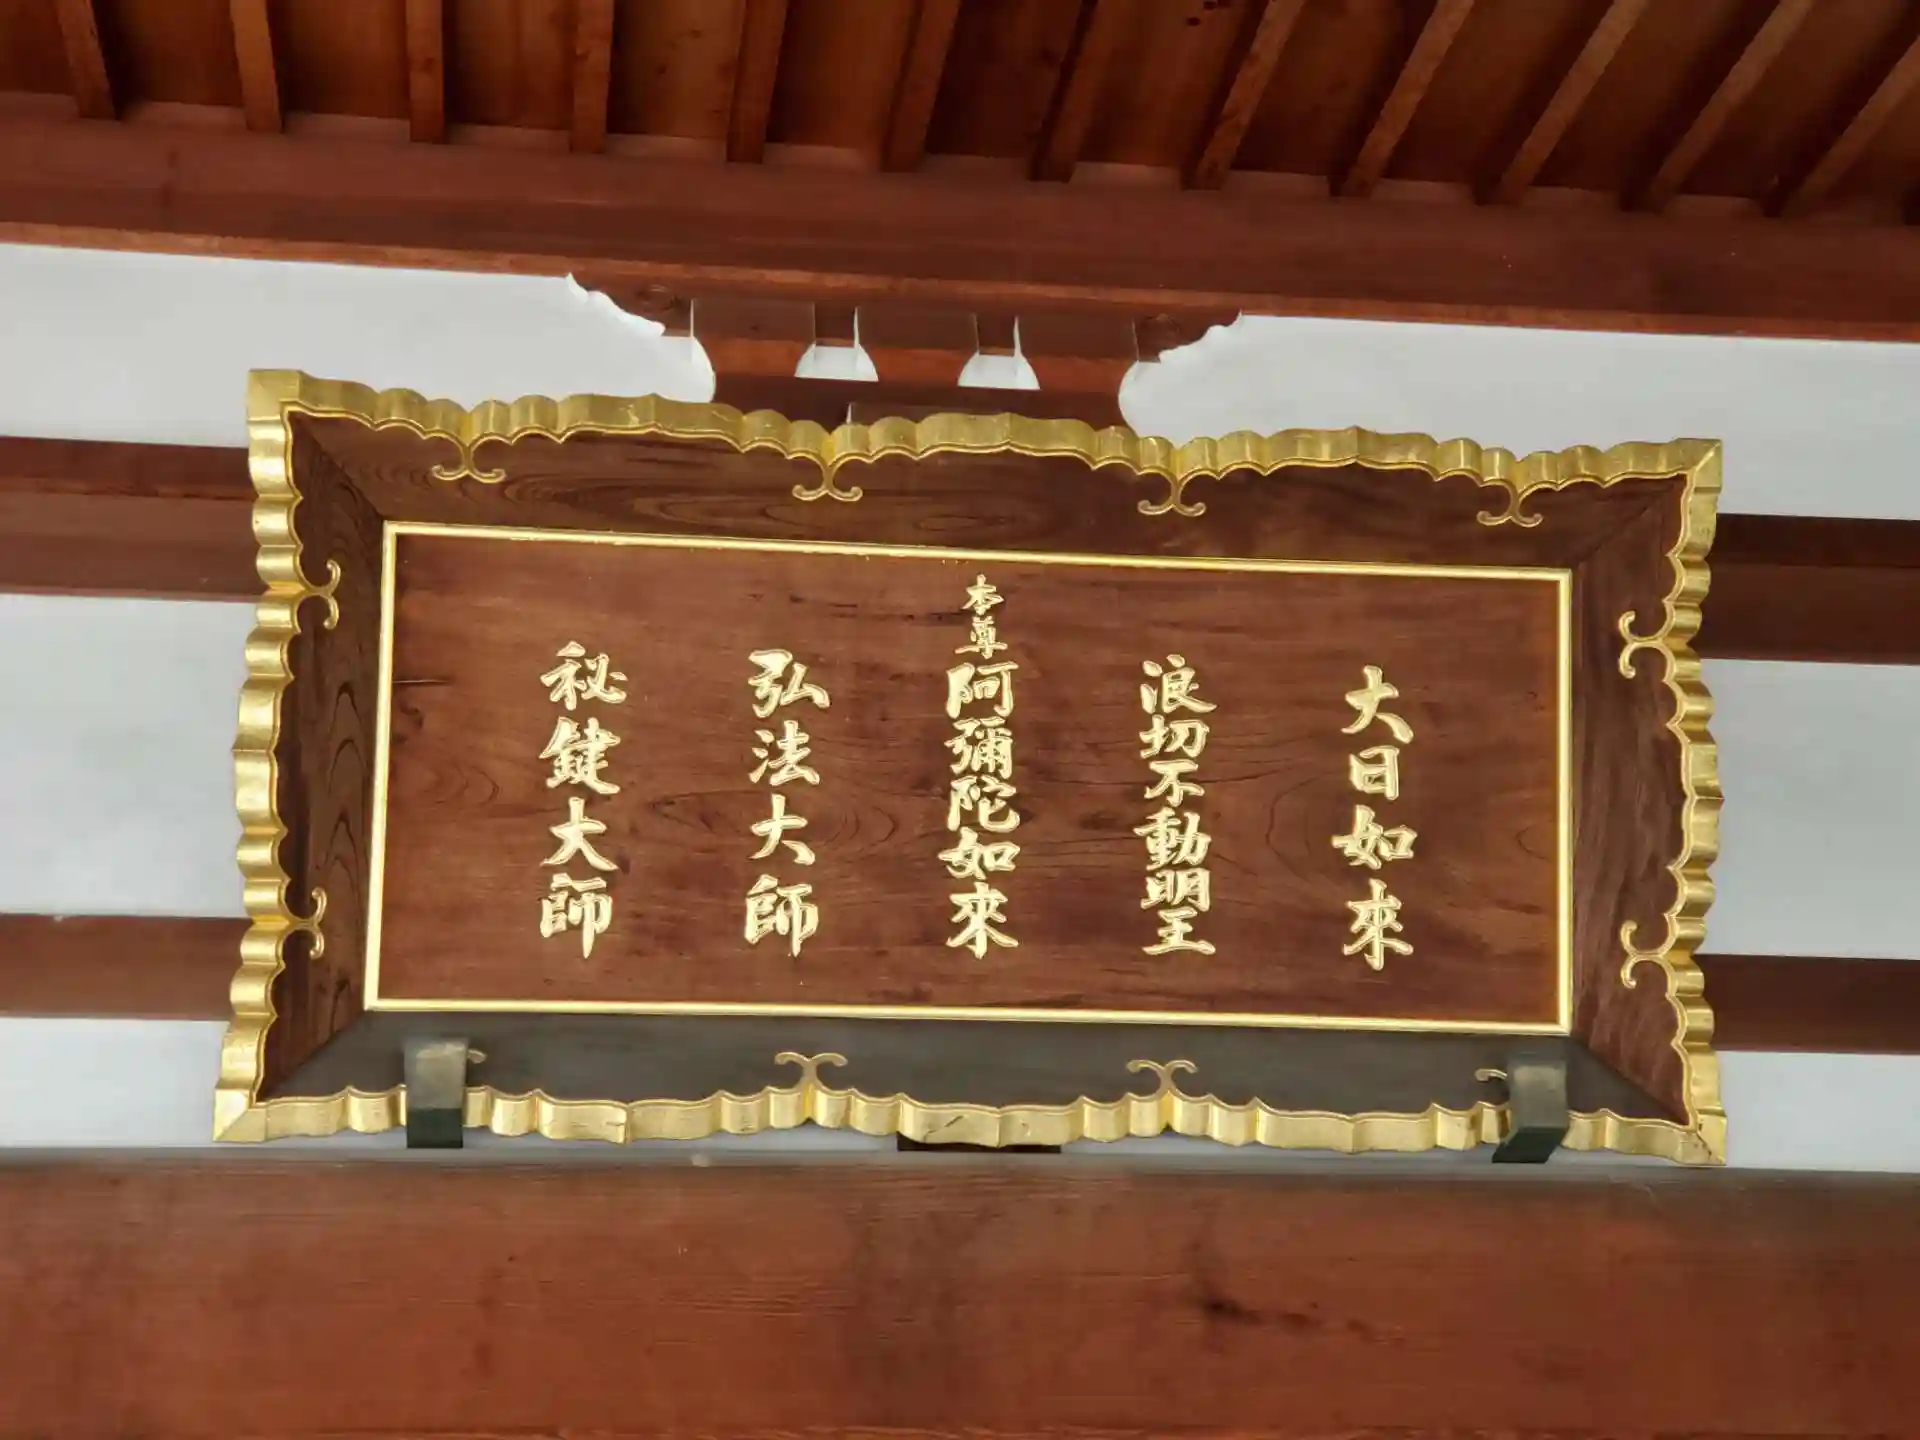 大日如來
浪切不動明王
本尊阿彌陀如來
弘法大師
秘鍵大師